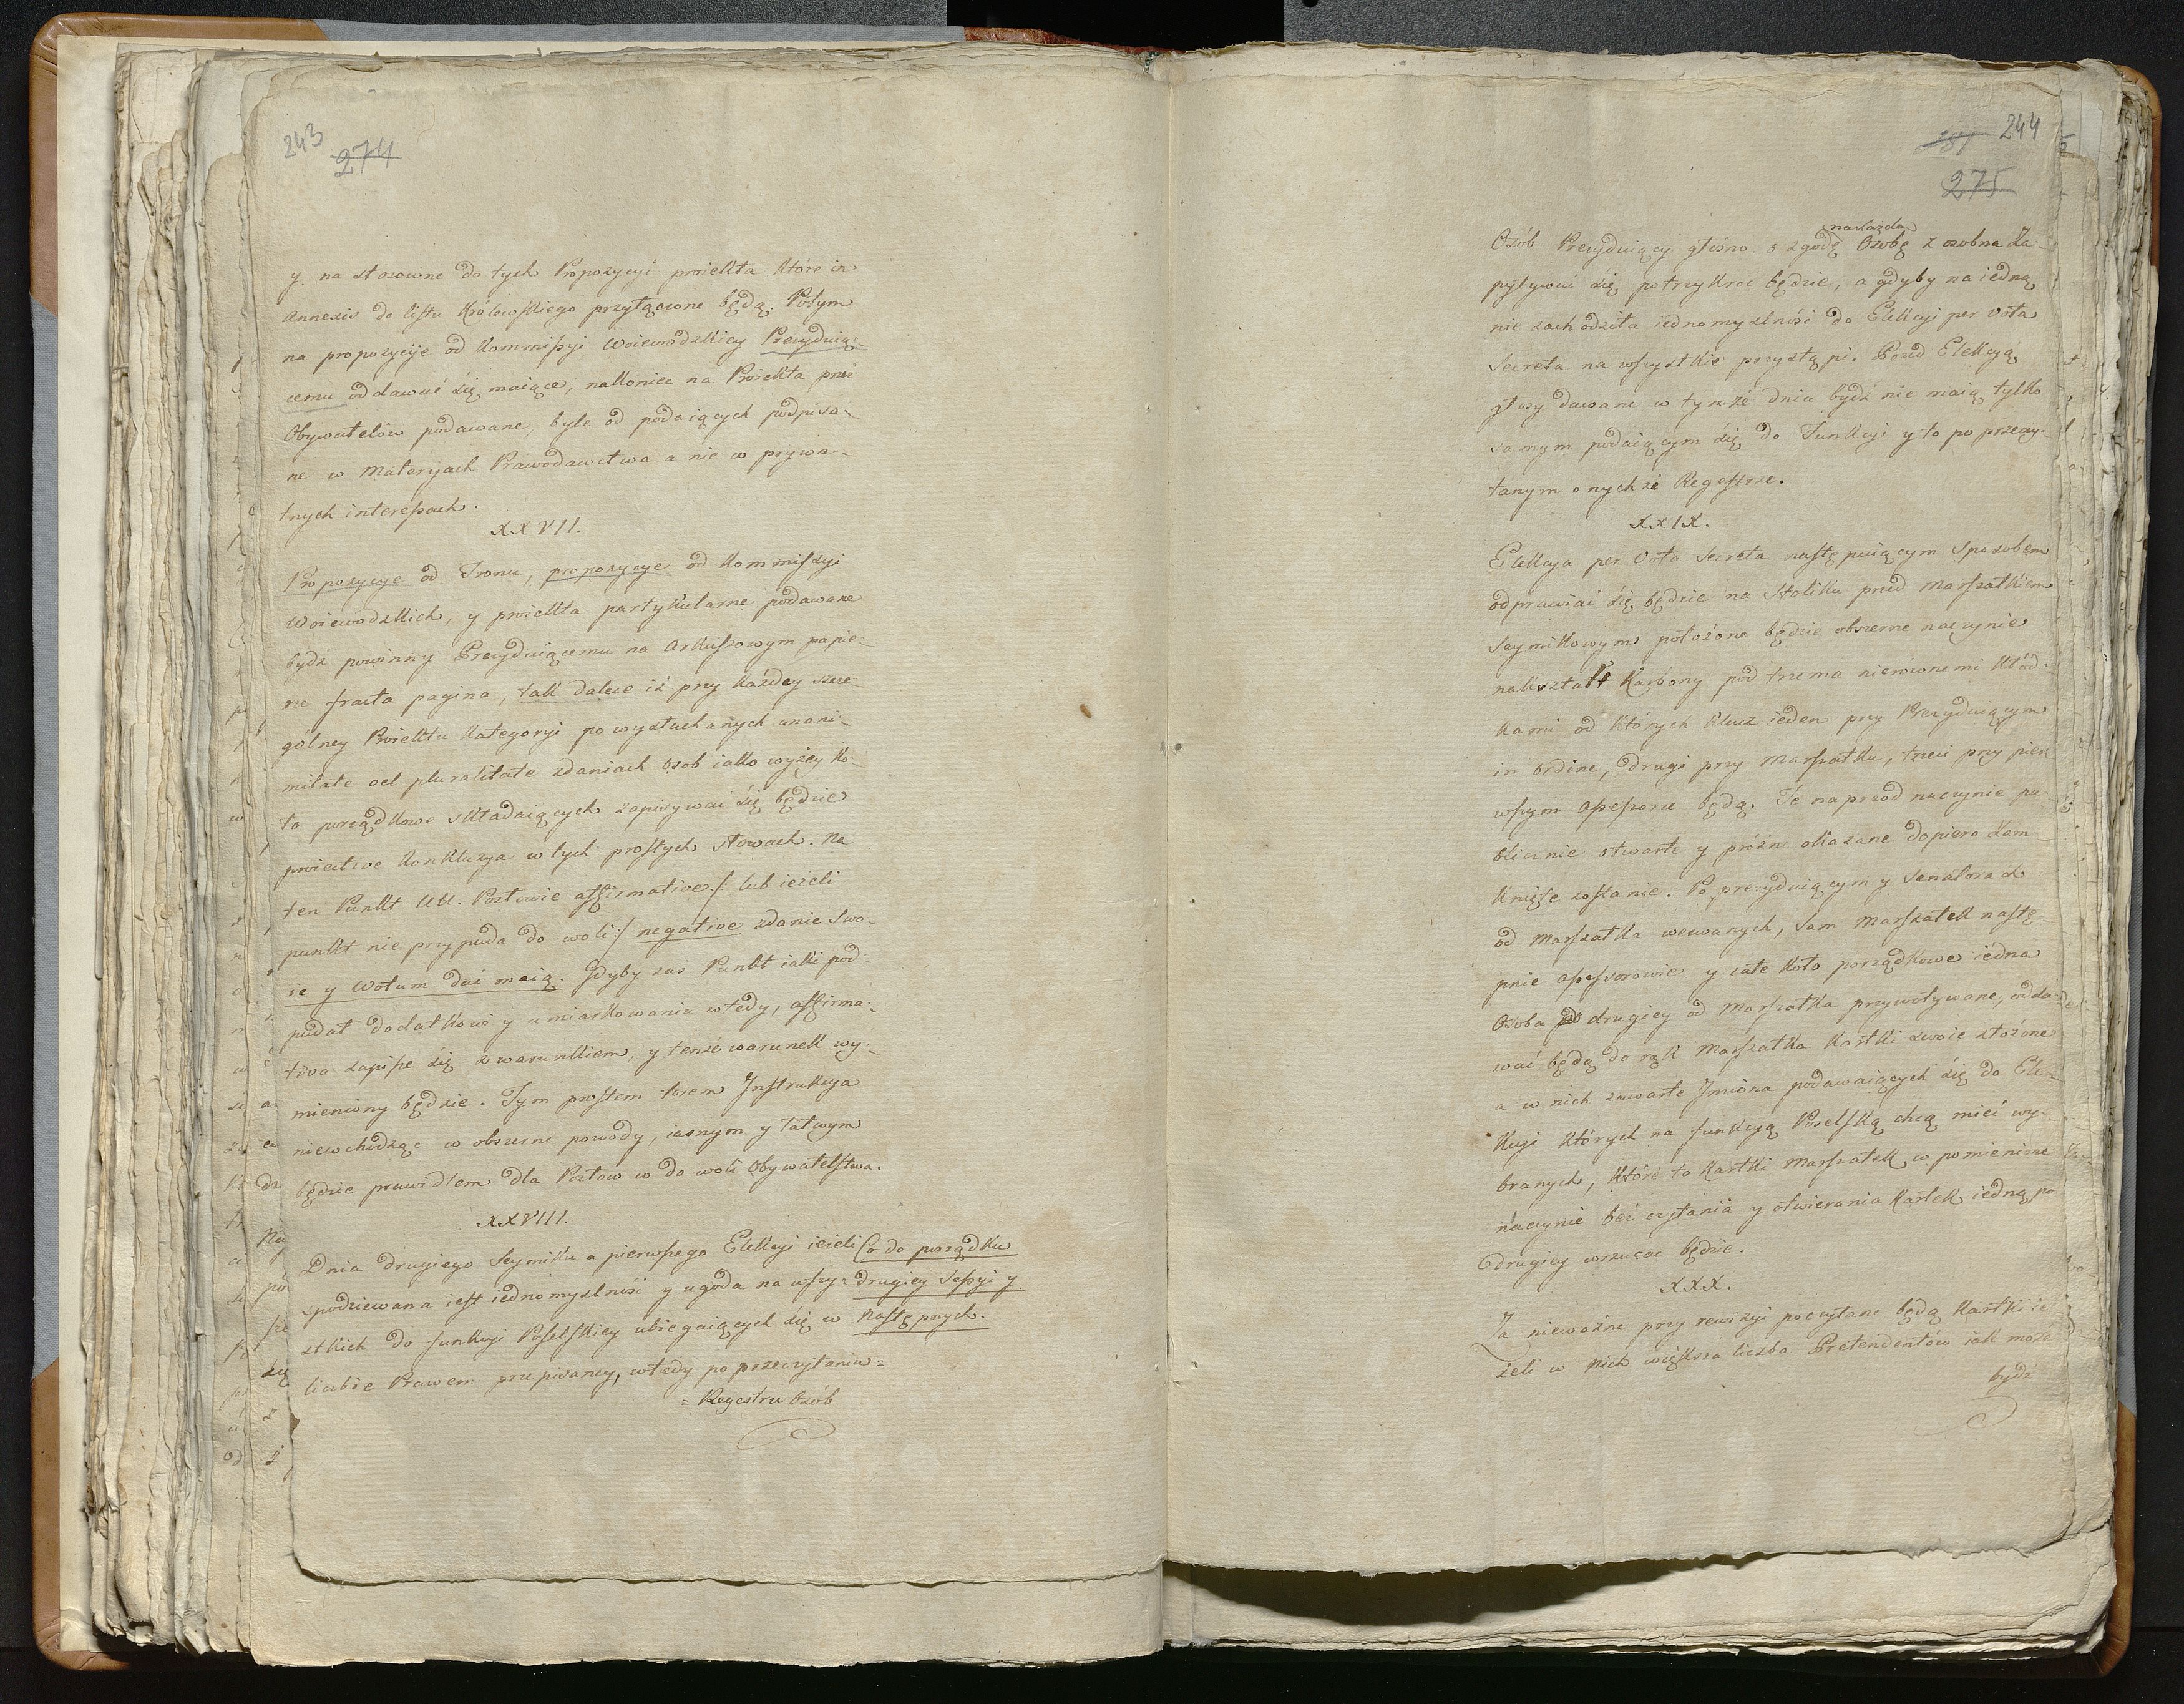 243 274
y na stosowne do tych Propozycyi proiekta które in
Annexis do listu Królewskiego przyłączone będą. Potym
na propozycye od Kommissyi Woiewodzkiey Prezyduią=
cemu oddawać się maiące, nakoniec na Proiekta przez
Obywatelów podawane, byle od podaiących podpisa=
ne w Materyach Prawodawctwa a nie w prywa=
tnych interessach.
XXVII.
Propozycye od Tronu, propozycye od Kommiszyi
Woiewodzkich, y proiekta partykularne podawane
bydź powinny Prezyduiącemu na Arkuszowym papie=
rze fracta pagina, tak dalece iż przy każdey szcze=
gólney Proiektu kategoryi po wysłuchanych unani=
mitate vel pluralitate zdaniach Osob iako wyżey Ko=
ło porządkowe składaiących zapisywać się będzie
proiective Konkluzya w tych prostych słowach. Na
ten Punkt UU. Posłowie affirmative /: lub ieżeli
punkt nie przypada do woli :/ negative zdanie swo=
ie y Wotum dać maią. Gdyby zaś Punkt iaki pod=
padał dodatkowi y umiarkowaniu wtedy, affirma=
tiva zapisze się z warunkiem, y tenże warunek wy=
mieniony będzie. Tym prostem torem Instrukcya
niewchodząc w obszerne powody, iasnym y łatwym
będzie prawidłem dla Posłow w do woli Obywatelstwa.
XXVIII.
Dnia drugiego Seymiku a pierwszego Elekcyi ieżeli
spodziewana iest iednomyslność y ugoda na wszy=
stkich do funkcyi Poselskiey ubiegaiących się w
liczbie Prawem przepisaney, wtedy po przeczytaniu=
Co do porządku
drugiey Sessyi y
następnych.
= Regestru Osób
281 244
275
Osób Prezyduiący głośno o zgodę na każdą Osobę z osobna Za=
pytywać się potrzykroć będzie, a gdyby na iedną
nie zachodziła iednomyslność do Elekcyi per Vota
Secreta na wszystkie przystąpi. Przed Elekcyą
głosy dawane w tymże dniu bydź nie maią tylko
samym podaiącym się do Funkcyi y to po przeczy=
tanym onychże Regestrze.
XXIX.
Elekcya per Vota Secreta następuiącym sposobem
odprawiać się będzie na Stoliku przed Marszałkiem
Seymikowym położone będzie obszerne naczynie
nakształt Karbony pod trzema nierównemi kłód=
kami od których klucz ieden przy Prezyduiącym
in ordine, drugi przy Marszałku, trzeci przy pier
wszym Assessorze będą. Te naprzod naczynie pu=
blicznie otwarte y próżne okazane dopiero Zam
knięte zostanie. Po prezyduiącym y Senatorach
od Marszałka wezwanych, sam Marszałek nastę=
pnie Assessorowie y całe Koło porządkowe iedna
Osoba po drugiey od Marszałka przywoływane, odda=
wać będą do rąk Marszałka Kartki swoie złożone
a w nich zawarte Imiona podawaiących się do Ele=
kcyi których na funkcyą Poselską chcą mieć wy=
branych, które to Kartki Marszałek w pomienione
naczynie bez czytania y otwierania Kartek iedną po
drugiey wrzucać będzie.
XXX.
Za nieważne przy rewizyi poczytane będą Kartki ie
żeli w nich większa liczba Pretendentów iak może
bydź